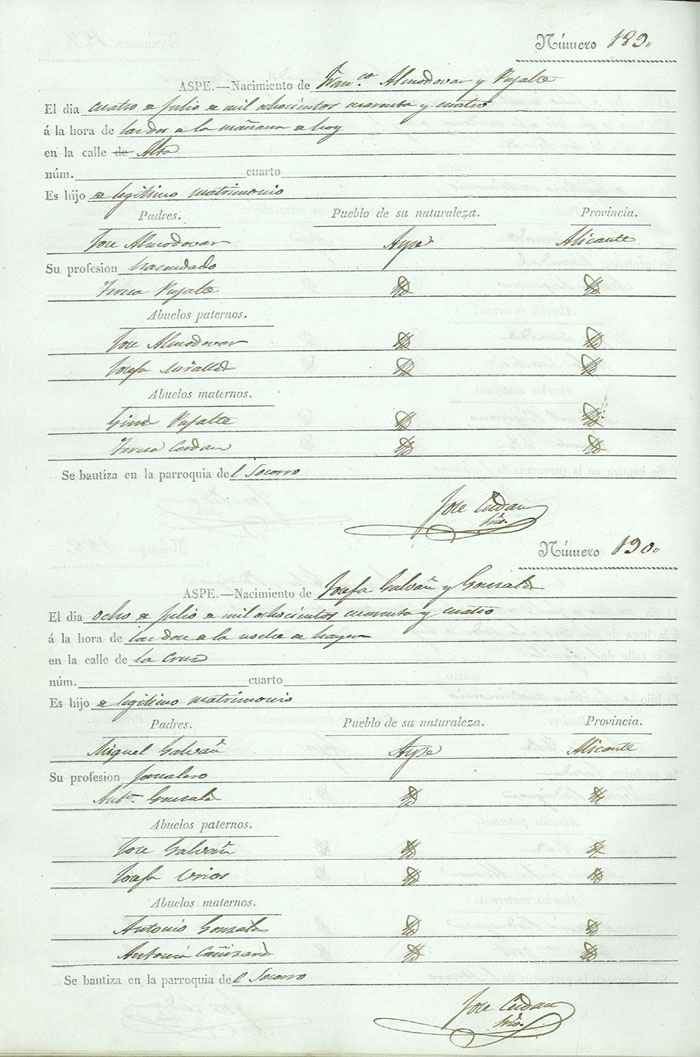 Número 189.
ASPE.—Nacimiento de Fran.co Almodovar y Pujalte
El dia cuatro de Julio de mil ochocientos cuarenta y cuatro
á la hora de las dos de la mañana de hoy
en la calle de Alta
núm. cuarto
Es hijo de legitimo matrimonio
Padres. Pueblo de su naturaleza. Provincia.
Jose Almodovar Aspe Alicante
Su profesion hacendado
Teresa Pujalte Yd Yd
Abuelos paternos.
Jose Almodovar Yd Yd
Josefa Miralles Yd Yd
Abuelos maternos. Yd
Gines Pujalte Yd
Teresa Cerdan Yd Yd
Se bautiza en la parroquia del Socorro
Jose Cerdan
Srio.
Número 190.
ASPE.—Nacimiento de Josefa Galvañ y Gonzalez
El dia ocho de Julio de mil ochocientos cuarenta y cuatro
á la hora de las doce de la noche de hayer
en la calle de la Cruz
núm. cuarto
Es hijo de legitimo matrimonio
Padres. Pueblo de su naturaleza. Provincia.
Miguel Galvañ Aspe Alicante
Su profesion jornalero
Ant.a Gonzalez Yd Yd
Abuelos paternos.
Jose Galvañ Yd Yd
Josefa Urios Yd Yd
Abuelos maternos.
Antonio Gonzalez Yd Yd
Antonia Cañizares Yd Yd
Se bautiza en la parroquia del Socorro
Jose Cerdan
Srio.